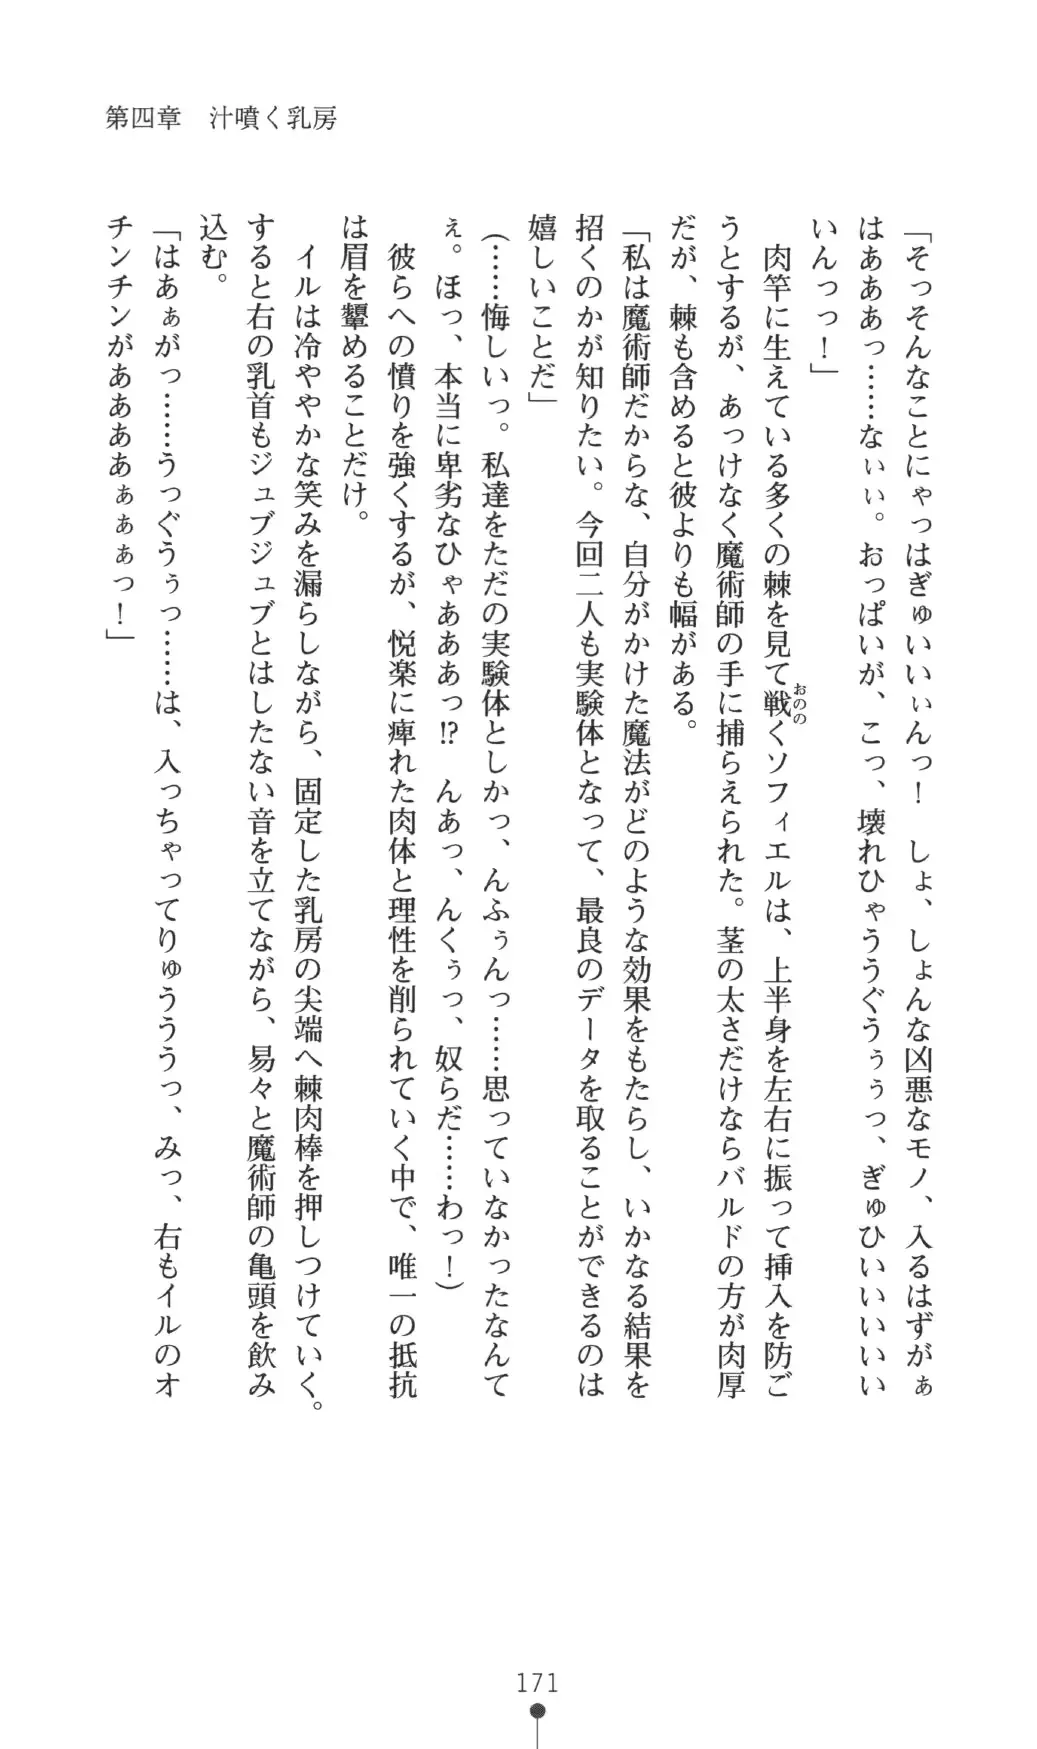 第四章　汁噴く乳房
「そっそんなことにゃっはぎゅいいぃんっ！　しょ、しょんな凶悪なモノ、入るはずがぁ
はあああっ……なぃぃ。おっぱいが、こっ、壊れひゃううぐうぅぅっ、ぎゅひいいいいい
いんっっ！」
　肉竿に生えている多くの棘を見て戦くソフィエルは、上半身を左右に振って挿入を防ご
おのの
うとするが、あっけなく魔術師の手に捕らえられた。茎の太さだけならバルドの方が肉厚
だが、棘も含めると彼よりも幅がある。
「私は魔術師だからな、自分がかけた魔法がどのような効果をもたらし、いかなる結果を
招くのかが知りたい。今回二人も実験体となって、最良のデータを取ることができるのは
嬉しいことだ」
（……悔しいっ。私達をただの実験体としかっ、んふぅんっ……思っていなかったなんて
ぇ。ほっ、本当に卑劣なひゃあああっ!?　んあっ、んくぅっ、奴らだ……わっ！）
　彼らへの憤りを強くするが、悦楽に痺れた肉体と理性を削られていく中で、唯一の抵抗
は眉を顰めることだけ。
　イルは冷ややかな笑みを漏らしながら、固定した乳房の尖端へ棘肉棒を押しつけていく。
すると右の乳首もジュブジュブとはしたない音を立てながら、易々と魔術師の亀頭を飲み
込む。
「はあぁがっ……うっぐうぅっ……は、入っちゃってりゅうううっ、みっ、右もイルのオ
チンチンがああああぁぁぁっ！」
171